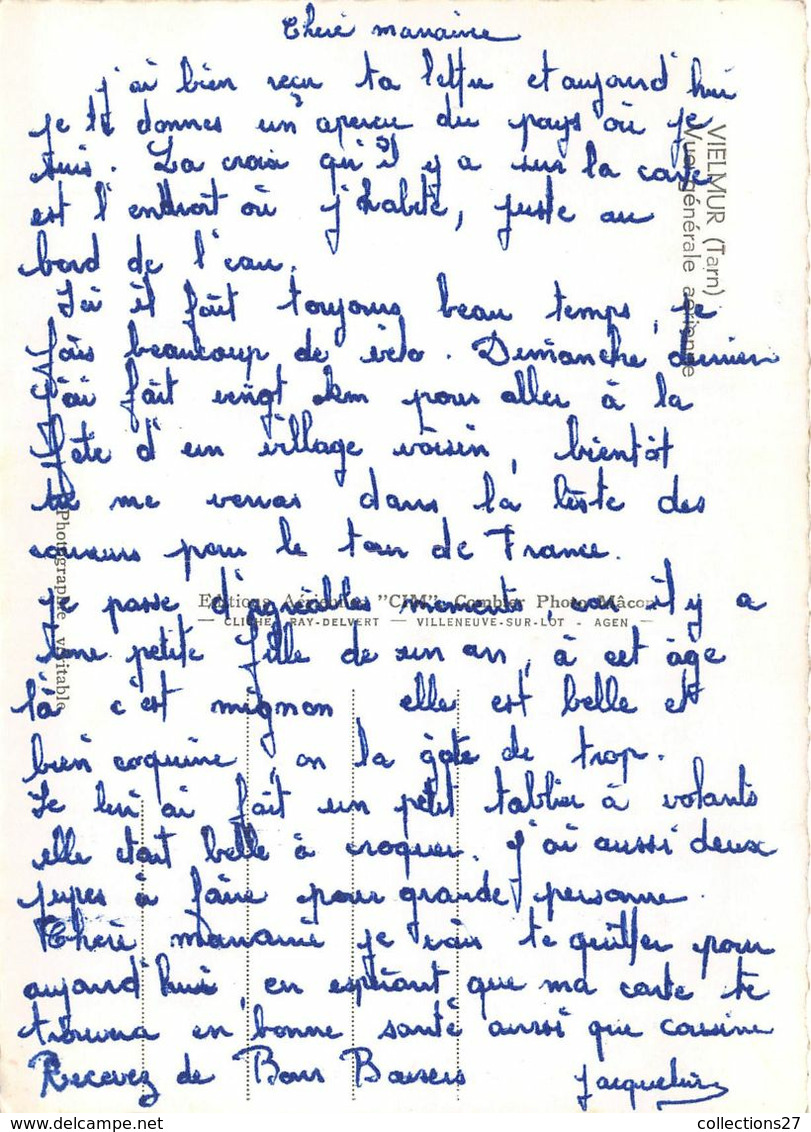 Cheré marraine
j'ai bien reçu ta lettre et aujourd'hui
je te donnes un aperçu du pays où je
suis. La croix qu'il y a sur la carte
est l'endroit où j'habite, juste au
bord de l'eau.
Ici il fait toujours beau temps, je
fais beaucoup de vélo. Dimanche dernier
j'ai fait vingt km pour aller à la
fête d'un village voisin, bientôt
tu me verras dans la liste des
coureurs pour le tour de France.
je passe d'agréables moments, car il y a
une petite fille de un an, à cet âge
là c'est mignon elle est belle et
bien coquine, on la gate de trop.
Je lui ai fait un petit tablier à volants
elle était belle à croquer. j'ai aussi deux
jupes à faire pour grande personne.
Cheré marraine je vais te quitter pour
aujourd'hui, en espérant que ma carte te
trouvera en bonne santé aussi que cousine
Recevez de Bons Baisers Jacqueline
VIELMUR (Tarn)
Vue générale aérienne
Photographie véritable
Editions Aériennes "CIM" Combier Photo Mâcon
— CLICHÉ RAY-DELVERT — VILLENEUVE-SUR-LOT - AGEN —
collections27